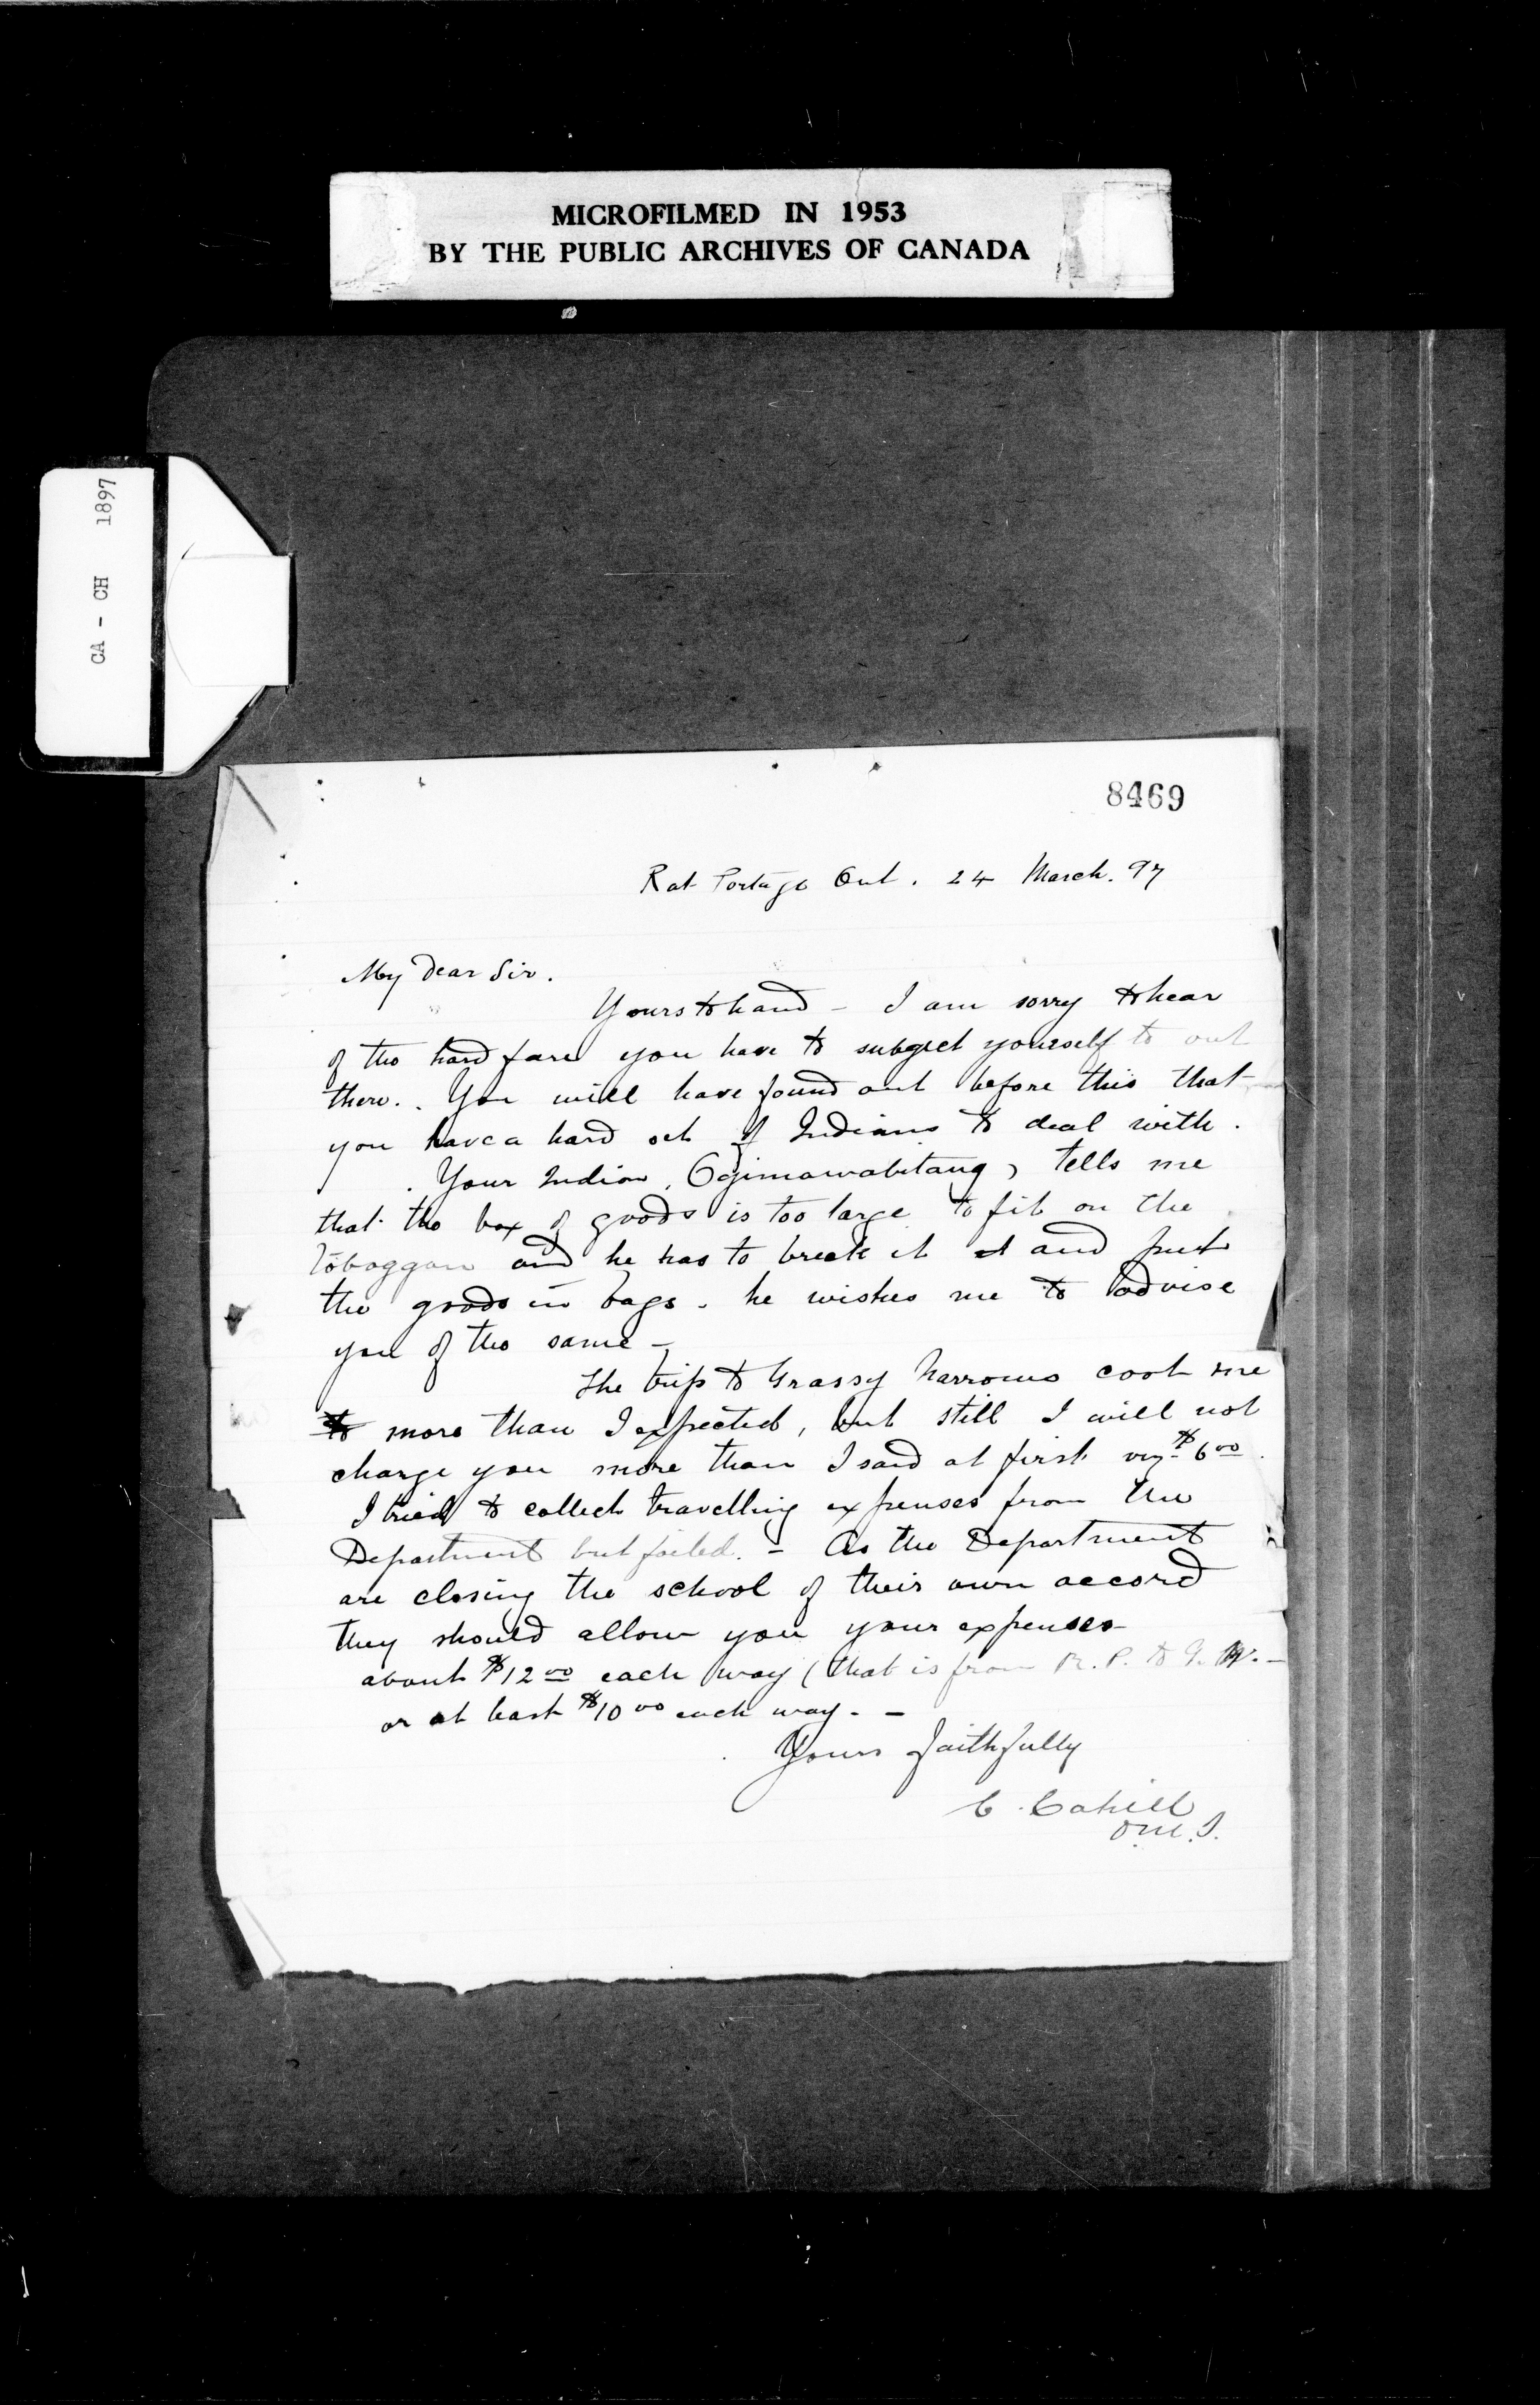 MICROFILMED IN 1953
BY THE PUBLIC ARCHIVES OF CANADA
CA - CH 1897
8469
Rat Portage Ont. 24 March. 97
My Dear Sir.
Yours to hand - I am sorry to hear
of the hard fare you have to subject yourself to out
there. You will have found out before this that
you have a hard set of Indians to deal with.
Your Indian, Ogimawabitang, tells me
that the box of goods is too large to fit on the
toboggan and he has to break it and put
the goods in bags. he wishes me to advise
you of the same -
The trip to Grassy Narrows cost me
more than I expected, but still I will not
charge you more than I said at first viz- $6 00.
I tried to collect travelling expenses from the
Department but failed. - As the Department
are closing the school of their own accord
they should allow you your expenses
about $12 00 each way (that is from R. P. to G. N. -
or at least $10 00 each way. -
Yours faithfully
C. Cahill
O.M.I.